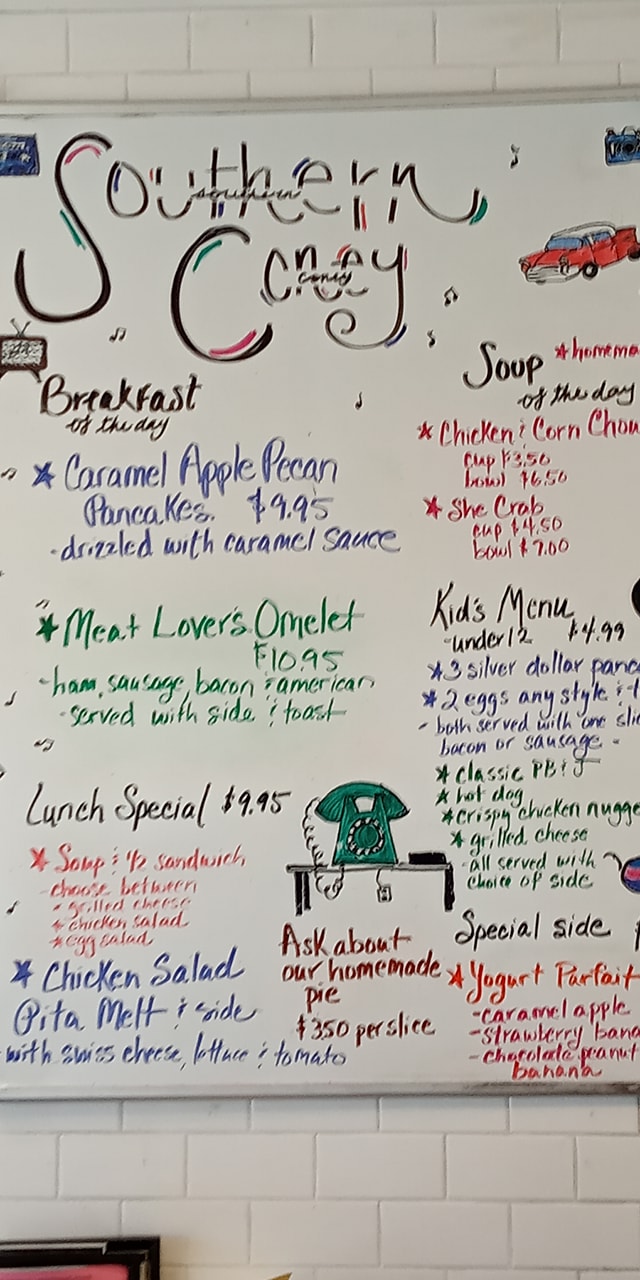 Southern
southern
Candy
candy
Breakfast
of the day
* Caramel Apple Pecan
Pancakes. $9.95
-drizzled with caramel sauce
* Meat Lover's Omelet
$10.95
-ham, sausage, bacon & american
-served with side & toast
Lunch Special $9.95
* Soup & 1/2 sandwich
-choose between
* grilled cheese
* chicken salad
* egg salad
* Chicken Salad
Pita Melt & side
with swiss cheese, lettuce & tomato
Ask about
our homemade
pie
$3.50 per slice
Soup *homema
of the day
* Chicken & Corn Chow
cup $3.50
bowl $6.50
* She Crab
cup $4.50
bowl $7.00
Kid's Menu
-under 12 $4.99
* 3 silver dollar panca
* 2 eggs any style & t
- both served with one slic
bacon or sausage -
* classic PB & J
* hot dog
* crispy chicken nugge
* grilled cheese
-all served with
choice of side
Special side
* Yogurt Parfait
-caramel apple
-strawberry bana
-chocolate peanut
banana